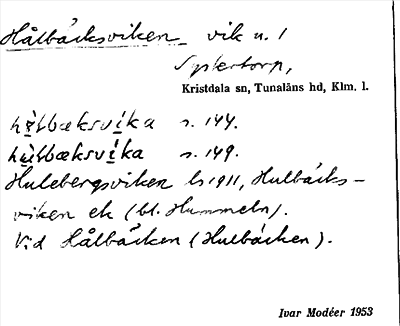 Hålbäcksviken vik u. 1
Systertorp,
Kristdala sn, Tunaläns hd, Klm. l.
hø̀lbæksvi̍ka s. 144.
hùlbæksvi̍ka s. 149.
Hulebergsviken ls 1911, Hulbäcks-
viken ek (bl. Hummeln).
Vid Hålbäcken (Hulbäcken).
Ivar Modéer 1953